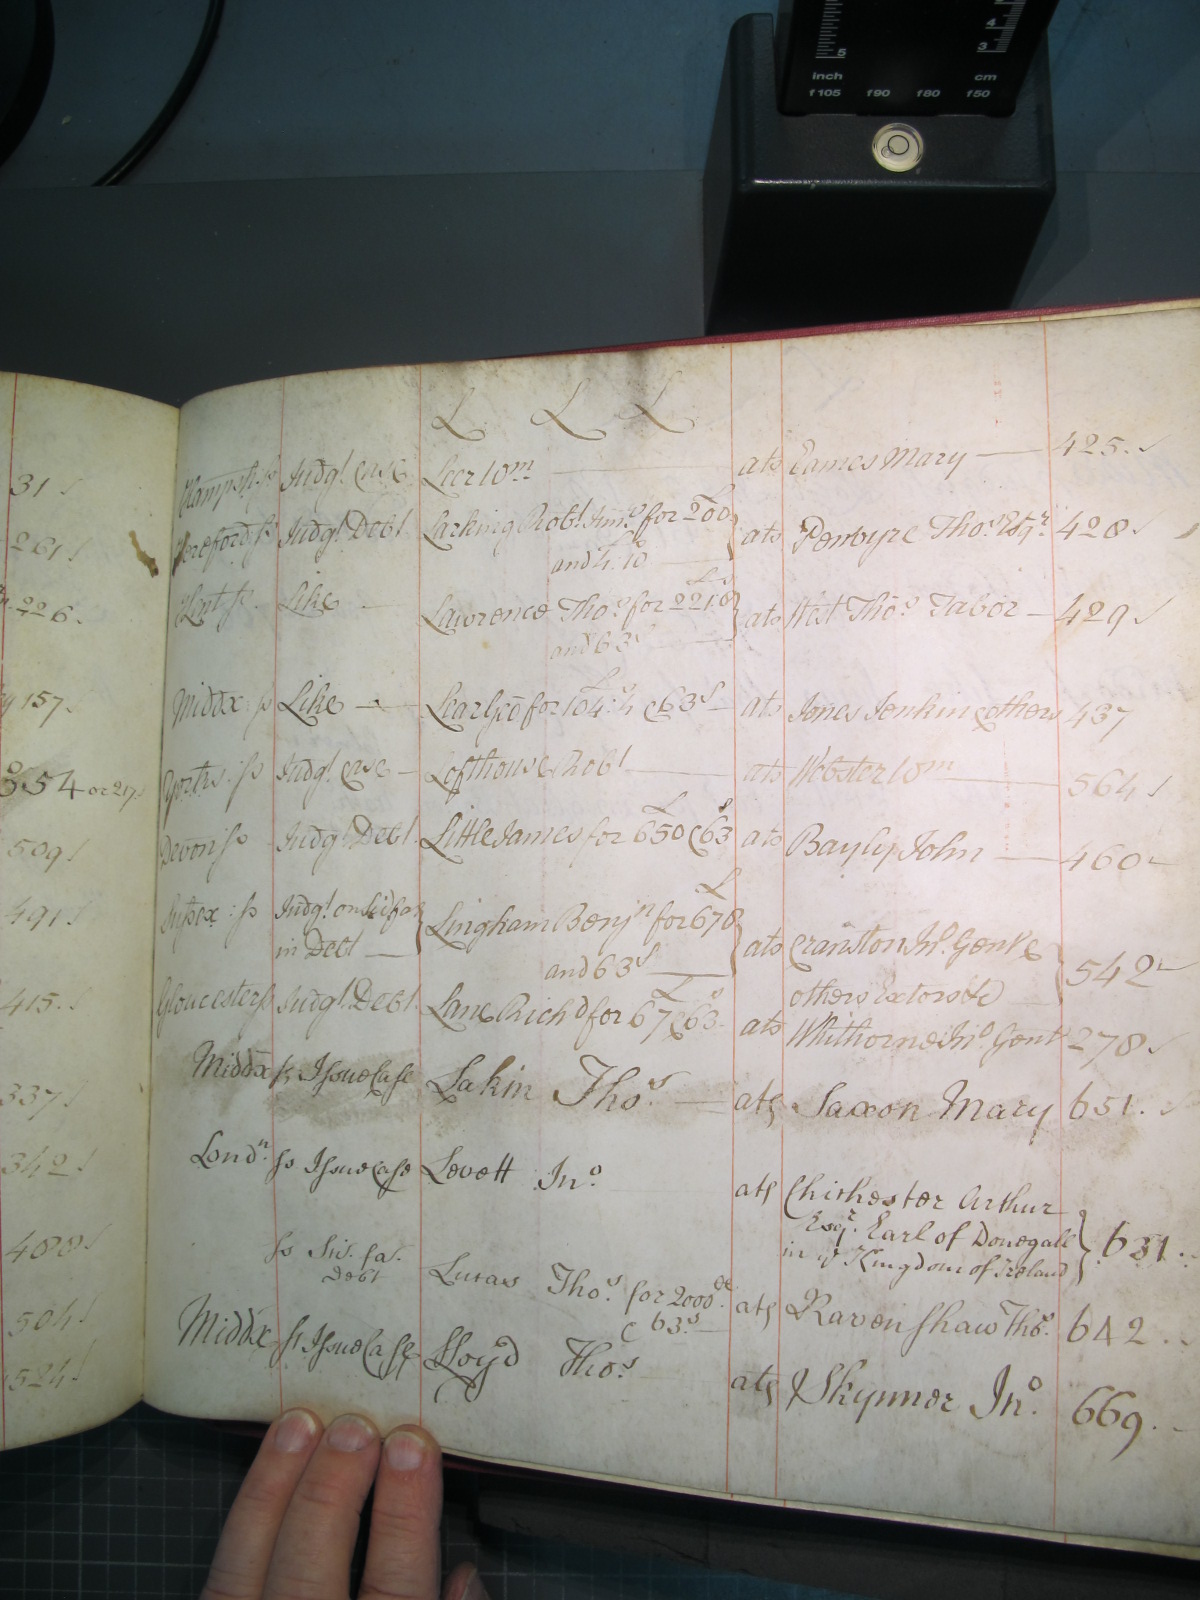 5 4 3
inch cm
f105 f90 f80 f50
L L L
31
261
226.
157.
554 or 217.
509
491
415.
337
342
488
504
524
Hampsh: ss Judgt. Case Leer Wm at s Eames Mary 425.
Herefords: ss Judgt. Debt Larking Robt. Armr. for £200 at s Penoyre Thos. Esqr. 428
and £4.10
Kent ss. Like Lawrence Thos. for 221: 6 at s West Thos. Tabor 429
and 63s
Middx ss Like Lear Geo for 104: 4 & 63s at s Jones Jenkin & others 437
Yorks: ss Judgt. Case Lofthouse Robt at s Webster Wm 564
Devon ss Judgt. Debt. Little James for £650 & 63s at s Bayly John 460
Sussex: ss Judgt. on Sci fa Lingham Benjn for £678 at s Cranston Jno. Gent &
in Debt and 63s others Exetors &c 542
Gloucester ss Judgt. Debt. Lane Richd for £67 & 63s at s Whithorne Jno. Gent 278
Middx ss Issue Case Lakin Thos. at s Saxon Mary 651.
Londn. ss Issue Case Levett Jno. at s Chichester Arthur
Esqr. Earl of Donegall 631.
in ye Kingdom of Ireland
ss Sci. fa. Lucas Thos. for 2000 at s Ravenshaw Thos. 642.
Debt & 63s.
Middx ss Issue Case Lloyd Thos. at s Skynner Jno. 669.